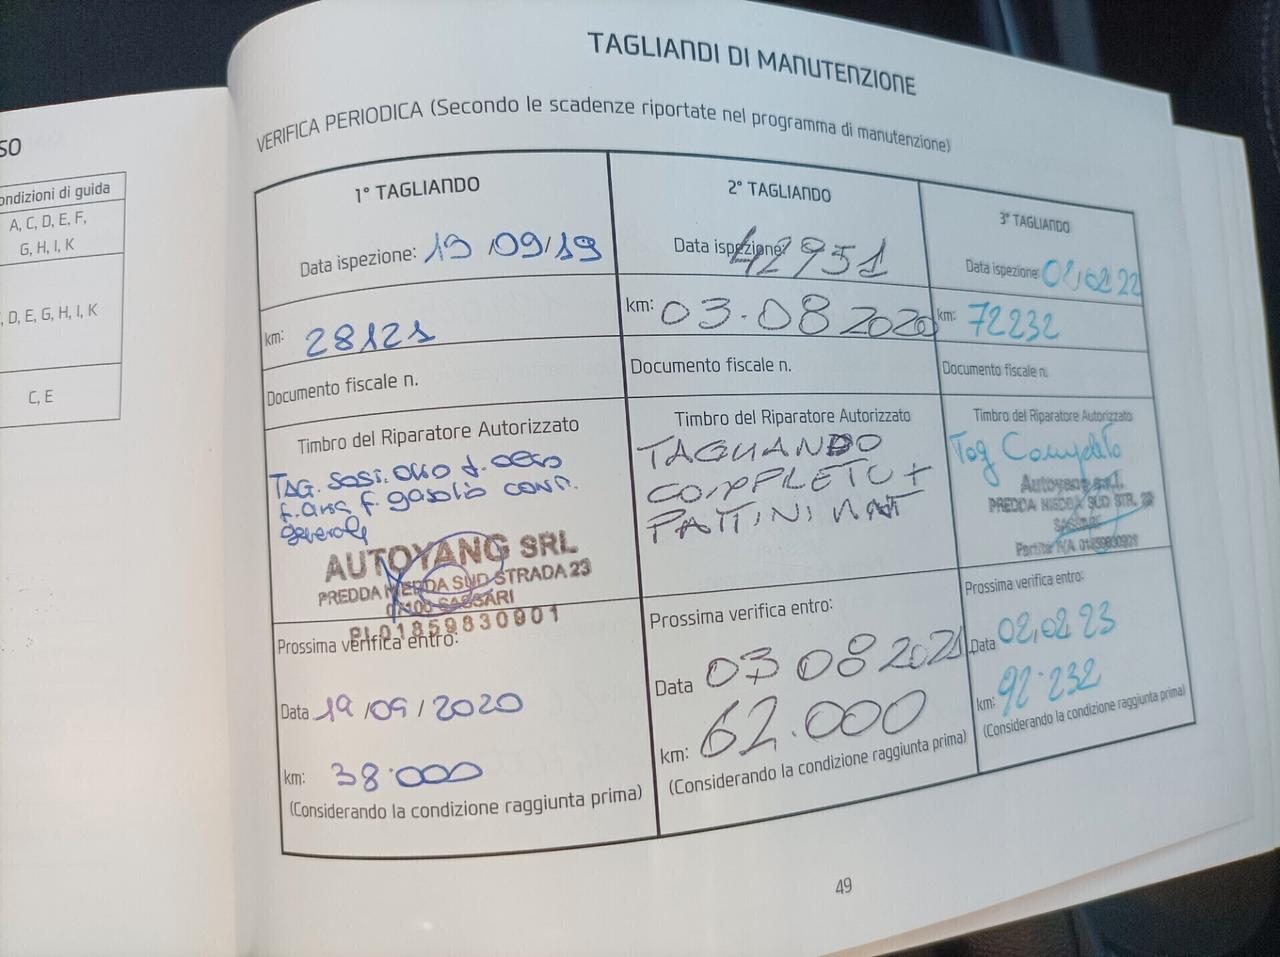 SO
ondizioni di guida
A, C, D, E, F,
G, H, I, K
, D, E, G, H, I, K
C, E
TAGLIANDI DI MANUTENZIONE
VERIFICA PERIODICA (Secondo le scadenze riportate nel programma di manutenzione)
1° TAGLIANDO
Data ispezione: 19/09/19
km: 28121
Documento fiscale n.
Timbro del Riparatore Autorizzato
TAG. sosi. olio f. olio
f. aria f. gasolio cont.
generale
AUTOYANG SRL
PREDDA NIEDDA SUD STRADA 23
07100 SASSARI
P.I. 01859830901
Prossima verifica entro:
Data 19/09/2020
km: 38.000
(Considerando la condizione raggiunta prima)
2° TAGLIANDO
Data ispezione: 42951
km: 03.08 2020
Documento fiscale n.
Timbro del Riparatore Autorizzato
TAGLIANDO
COMPLETO +
PATTINI ANT
Prossima verifica entro:
Data 03 08 2021
km: 62.000
(Considerando la condizione raggiunta prima)
3° TAGLIANDO
Data ispezione: 02,02 22
km: 72232
Documento fiscale n.
Timbro del Riparatore Autorizzato
Tag Completo
Autoyang s.r.l.
PREDDA NIEDDA SUD STR. 23
SASSARI
Partita IVA 01859830901
Prossima verifica entro:
Data 02,02 23
km: 92.232
(Considerando la condizione raggiunta prima)
49